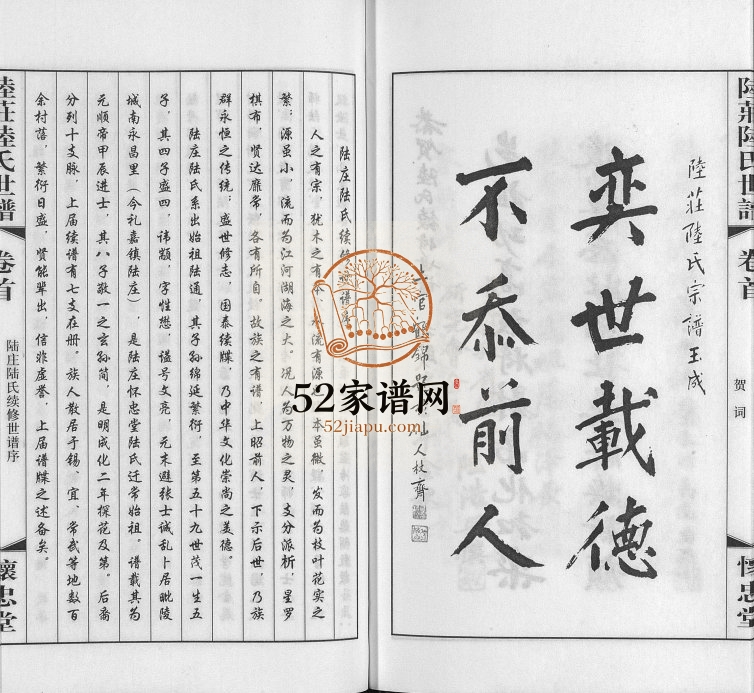 陸莊陸氏世譜
卷首
贺词
懷忠堂
陸莊陸氏宗譜玉成
奕世載德
不忝前人
52家谱网
52jiapu.com
陆庄陆氏续修世谱序
人之有宗犹木之有本水流有源本虽微发而为枝叶花实之
繁，源虽小流而为江河湖海之大。况人为万物之灵，支分派析，星罗
棋布，贤达靡常，各有所自。故族之有谱，上昭前人，下示后世，乃族
群永恒之传统；盛世修志，国泰续牒，乃中华文化崇尚之美德。
陆庄陆氏系出始祖陆通，其子孙绵延繁衍，至第五十九世茂一生五
子，其四子盛四，讳颛，字性懋，谥号文亮，元末避张士诚乱卜居毗陵
城南永昌里（今礼嘉镇陆庄），是陆庄怀忠堂陆氏迁常始祖。谱载其为
元顺帝甲辰进士，其八子敬一之玄孙简，是明成化二年探花及第。后裔
分列十支脉，上届续谱有七支在册。族人散居于锡、宜、常武等地数百
余村落，繁衍日盛，贤能辈出，信非虚誉，上届谱牒之述备矣。
陸莊陸氏世譜
卷首
陆庄陆氏续修世谱序
懷忠堂